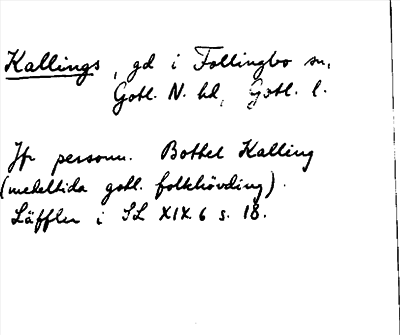 Kallings, gd i Follingbo sn,
Gotl. N. hd, Gotl. l.
Jfr personn. Bottel Kalling
(medeltida gotl. folkhövding).
Läffler i SL XIX.6 s. 18.